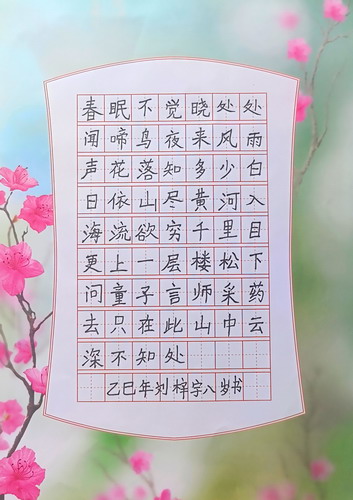 春眠不觉晓处处
闻啼鸟夜来风雨
声花落知多少白
日依山尽黄河入
海流欲穷千里目
更上一层楼松下
问童子言师采药
去只在此山中云
深不知处
乙巳年刘梓宇八岁书